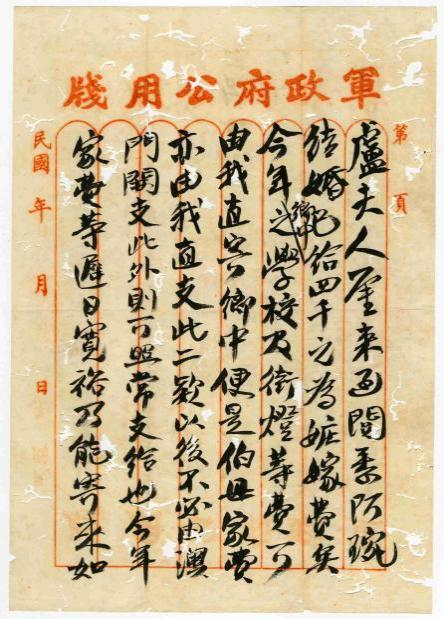 軍政府公用牋
第　頁
盧夫人鑒來函閱悉阿琬
結婚已給四千元為粧嫁費矣
今年鄉中之學校及街燈等費可
由我直寄鄉中便是伯母家費
亦由我直支此二款以後不必由澳
門關支此外則可照常支給也今年
家費等遲日寬裕乃能寄來如
民國　年　月　日